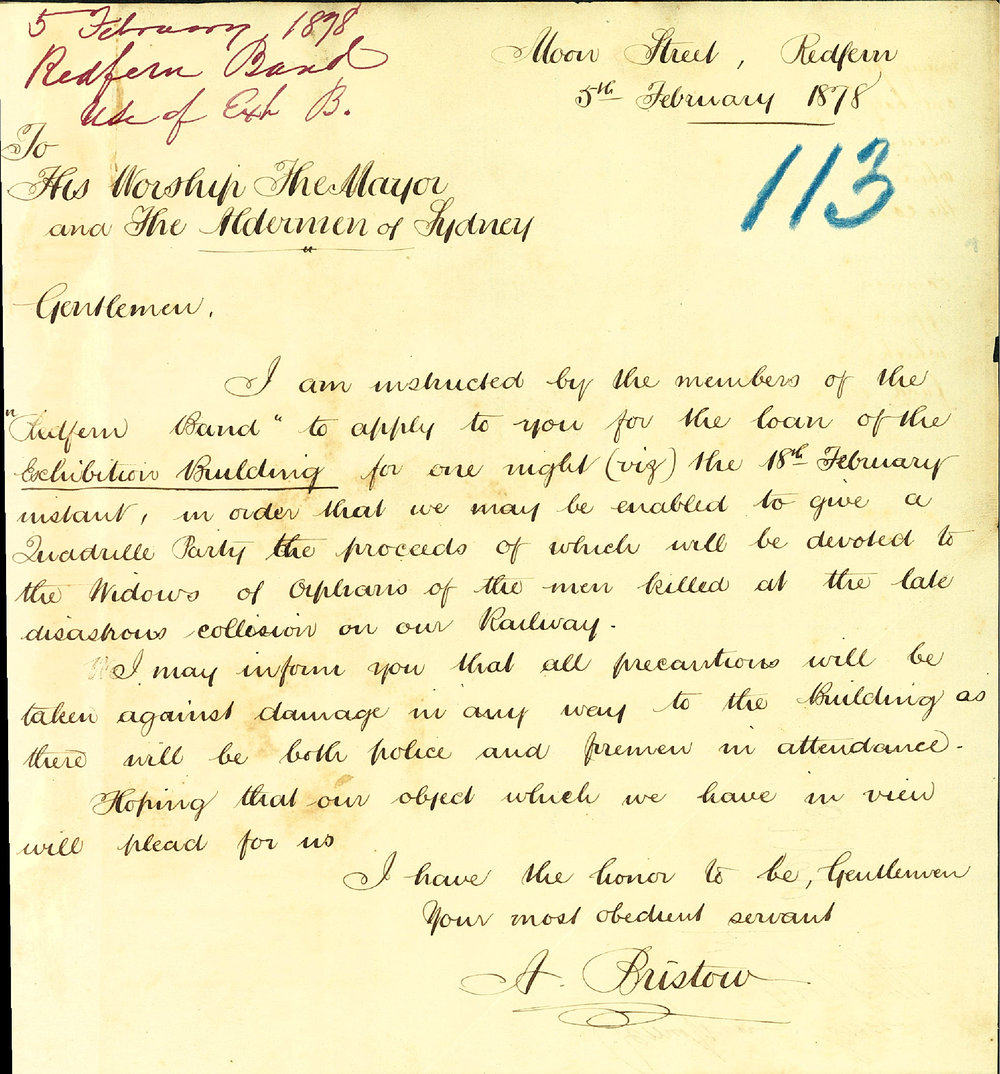 5 February 1878
Redfern Band
Use of Exh B.
Moon Street, Redfern
5th February 1878
113
To
His Worship The Mayor
and The Aldermen of Sydney
Gentlemen,
I am instructed by the members of the
"Redfern Band" to apply to you for the loan of the
Exhibition Building for one night (viz) the 18th February
instant, in order that we may be enabled to give a
Quadrille Party the proceeds of which will be devoted to
the Widows of Orphans of the men killed at the late
disastrous collision on our Railway.
I may inform you that all precautions will be
taken against damage in any way to the Building as
there will be both police and firemen in attendance.
Hoping that our object which we have in view
will plead for us
I have the honor to be, Gentlemen
Your most obedient servant
A. Bristow